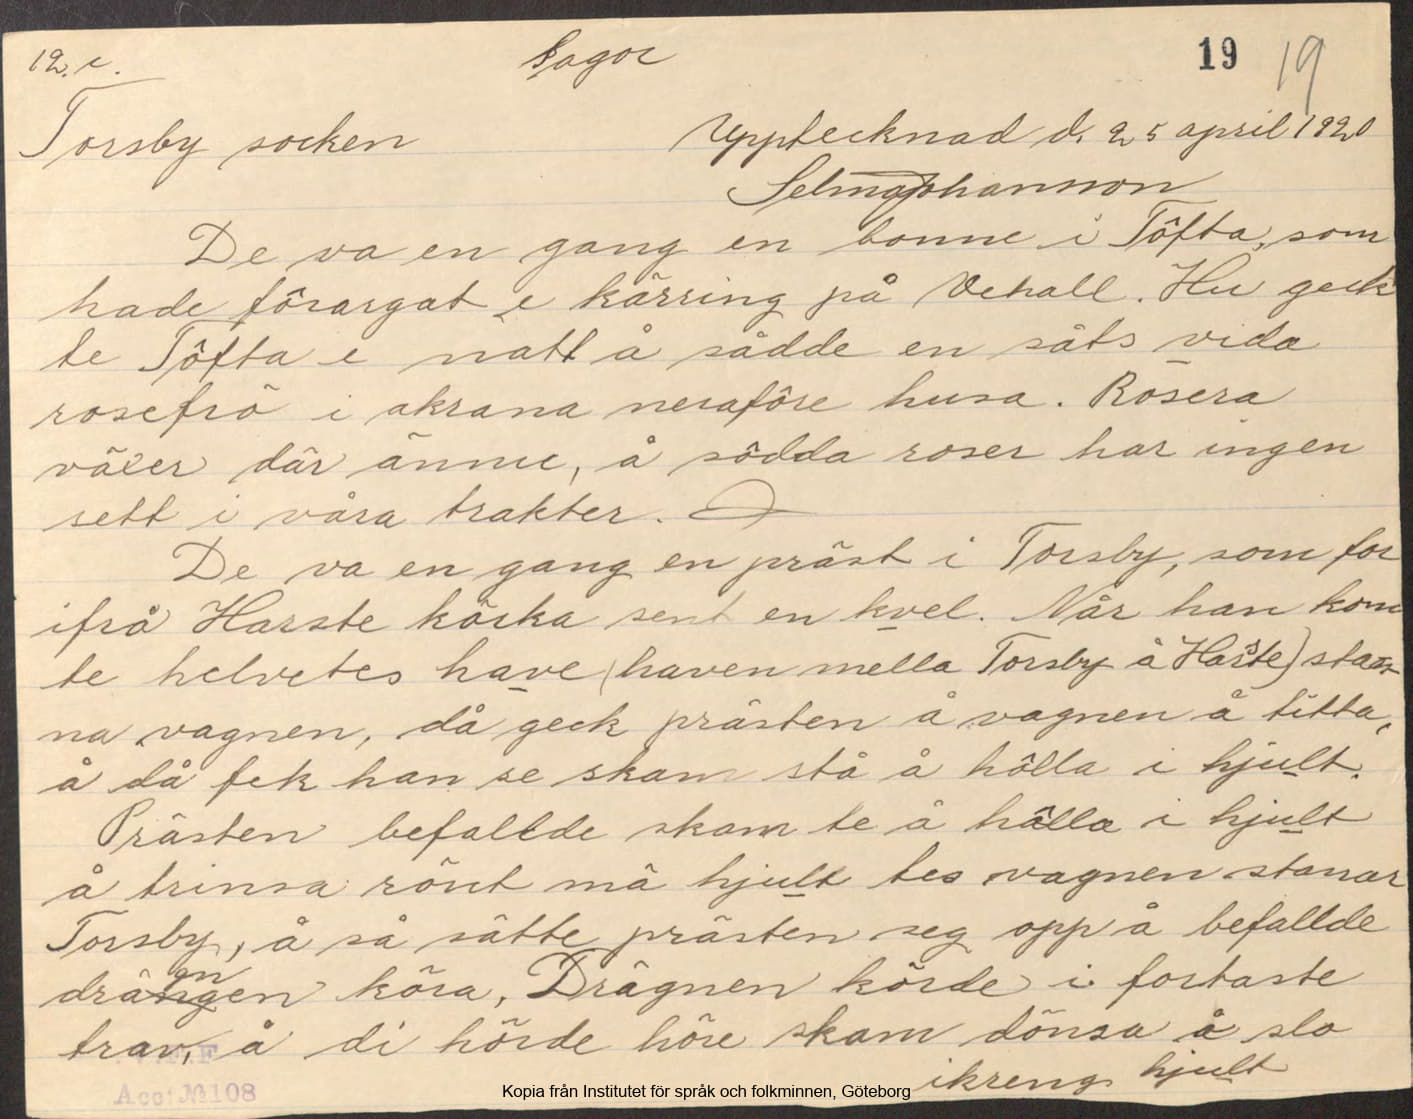 12. c.
Sagor
19 19
Torsby socken
Upptecknad d. 25 april 1920
Selma Johansson
De va en gang en bonne i Töfta, som
hade förargat e kärring på Vehall. Hu geck
te Töfta e natt å sådde en såts vida
rosefrö i akrana neraföre husa. Rosera
växer där ännu, å södda roser har ingen
sett i våra trakter.
De va en gang en präst i Torsby, som for
ifrå Harste körka sent en kvel. Når han kom
te helvetes have (haven mella Torsby å Harste) stan
na vagnen, då geck prästen å vagnen å titta,
å då fek han se skam stå å hölla i hjult.
Prästen befallde skam te å hölla i hjult
å trinsa rönt mä hjult tes vagnen stanar
Torsby, å så sätte prästen seg opp å befallde
drängen köra, Drägnen körde i fortaste
trav, å di hörde höre skam dönsa å slo
ikreng hjult
F.F
Acc: № 108
Kopia från Institutet för språk och folkminnen, Göteborg